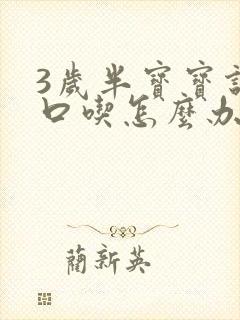 3歲半寶寶
口喫怎麼办
蔺新英